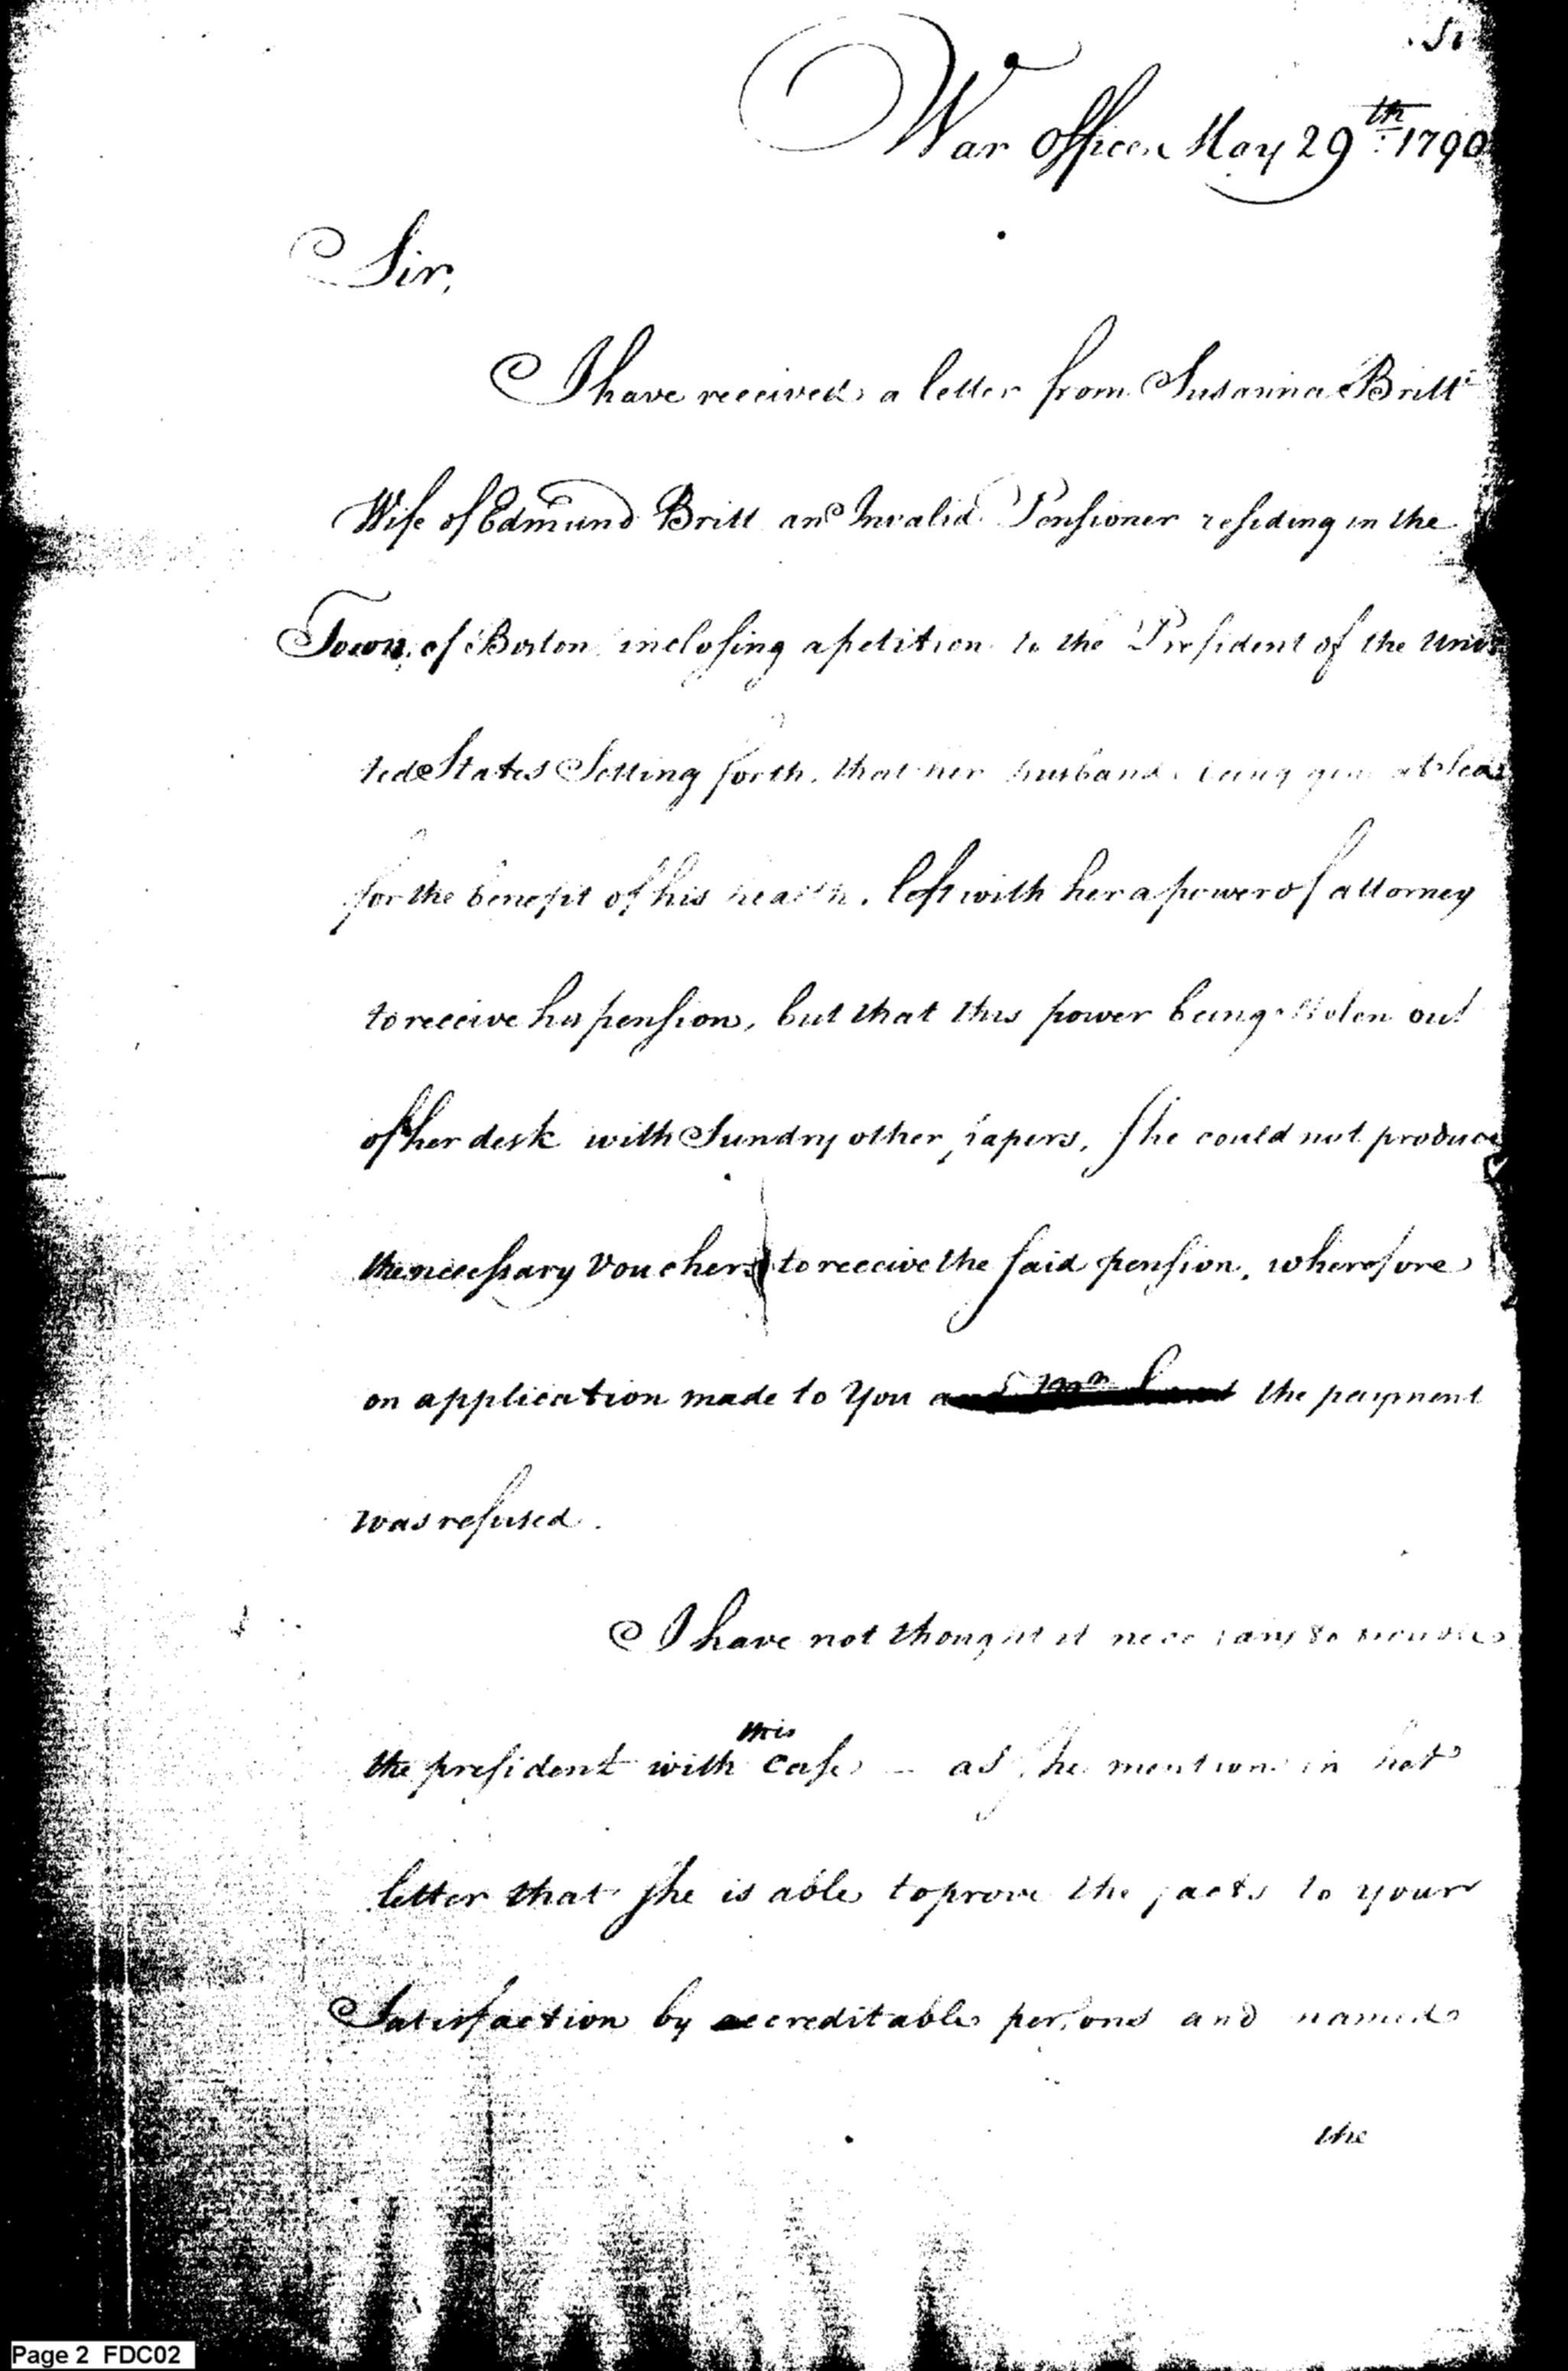 War Office May 29th 1790
Sir,
I have received a letter from Susanna Britt
Wife of Edmund Britt an Invalid Pensioner residing in the
Town of Boston inclosing a petition to the President of the Uni
ted States Setting forth, that her husband being at sea
for the benefit of his health, left with her a power of attorney
to receive his pension, but that this power being stolen out
of her desk with Sundry other papers, she could not produce
the necessary Vouchers to receive the said pension, wherefore
on application made to You the payment
was refused.
I have not thought it necessary to trouble
this
the president with case – as she mentions in her
letter that she is able to prove the facts to your
Satisfaction by creditable persons and named
the
Page 2 FDC02